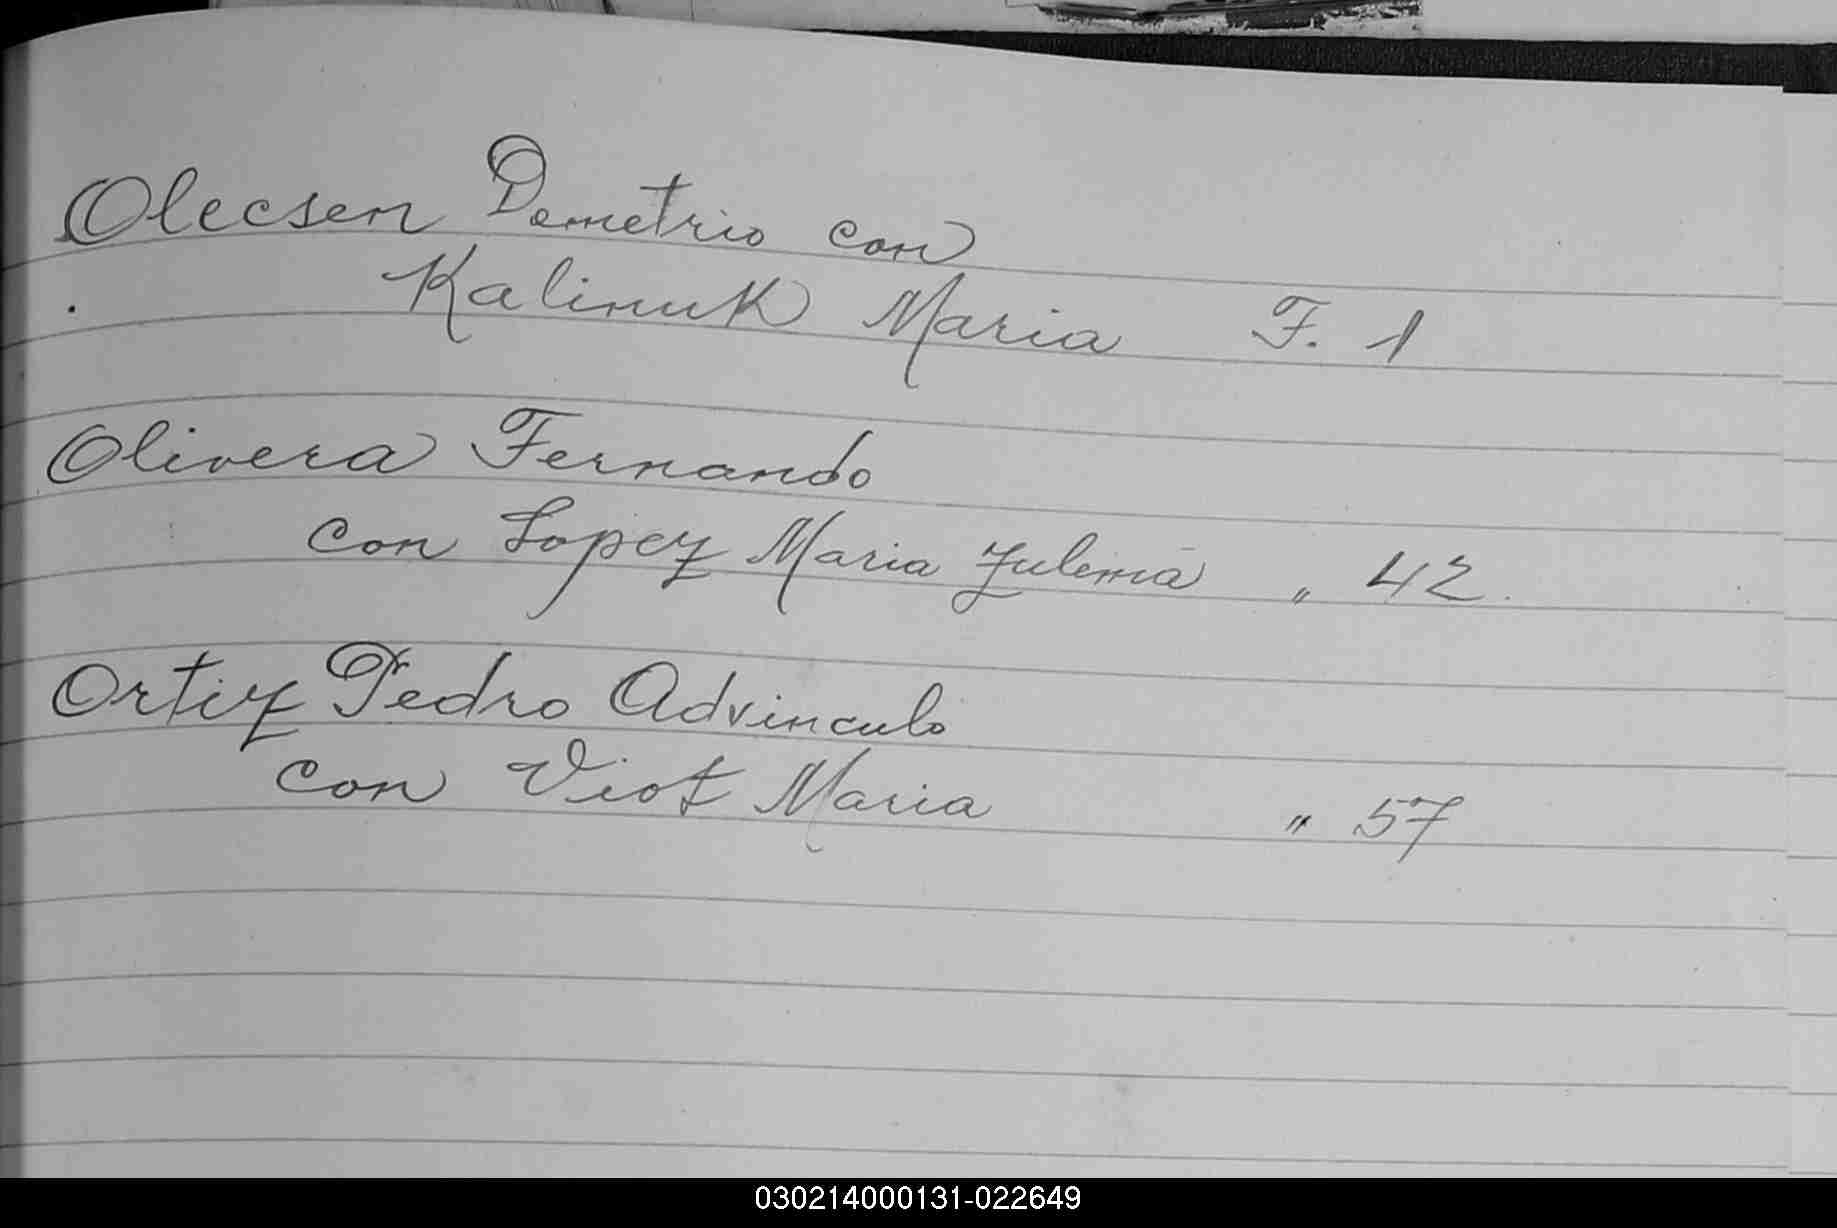 Olecsen Demetrio con
Kalinuk Maria F. 1
Olivera Fernando
con Lopez Maria Zulema „ 42.
Ortiz Pedro Advinculo
con Viot Maria „ 57
030214000131-022649